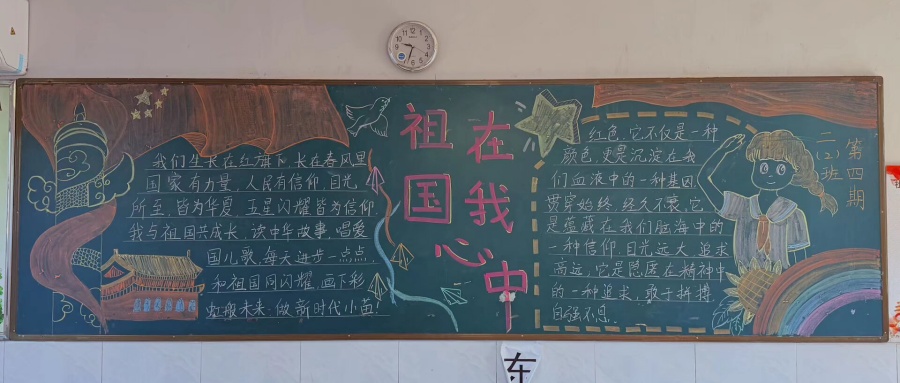 我们生长在红旗下,长在春风里
国家有力量,人民有信仰,目光
所至,皆为华夏,五星闪耀皆为信仰.
我与祖国共成长,读中华故事,唱爱
国儿歌,每天进步一点点
和祖国同闪耀,画下彩
虹般未来.做新时代小苗!
祖国在我心中
红色,它不仅是一种
颜色,更是沉淀在我
们血液中的一种基因.
贯穿始终,经久不衰,它
是蕴藏在我们脑海中的
一种信仰,目光远大,追求
高远,它是隐匿在精神中
的一种追求,敢于拼搏,
自强不息.
第四期
二(2)班
东